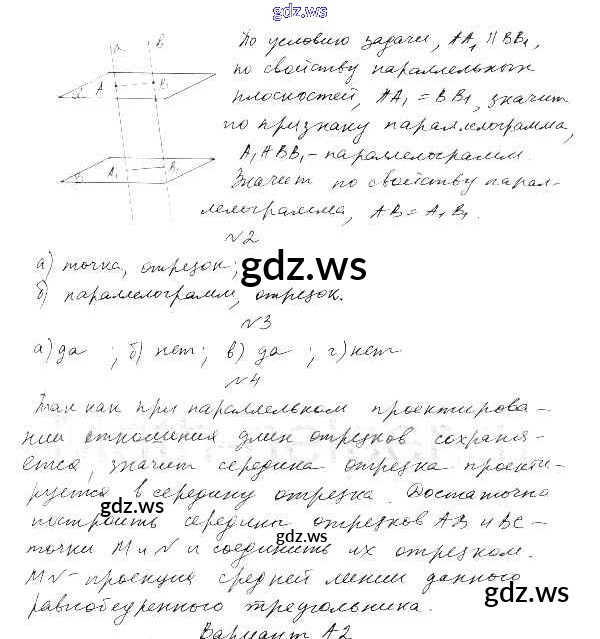 gdz.ws
a в
α A B₁
По условию задачи, AA₁ || BB₁,
по свойству параллельных
плоскостей, AA₁ = BB₁, значит
по признаку параллелограмма,
A₁ABB₁ - параллелограмм.
A₁ B₂
Значит по свойству парал-
лелограмма, AB = A₁B₁.
N2
а) точка, отрезок;
gdz.ws
б) параллелограмм, отрезок.
N3
а) да ; б) нет; в) да ; г) нет
N4
Так как при параллельном проектирова-
нии отношения длин отрезков сохраня-
ется, значит середина отрезка проекти-
руется в середину отрезка. Достаточно
gdz.ws
построить середины отрезков AB и BC -
точки M и N и соединить их отрезком.
gdz.ws
MN - проекция средней линии данного
gdz.ws
равнобедренного треугольника.
Вариант А2